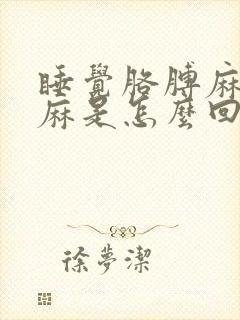 睡覺胳膊麻
麻是怎麼回
徐夢潔